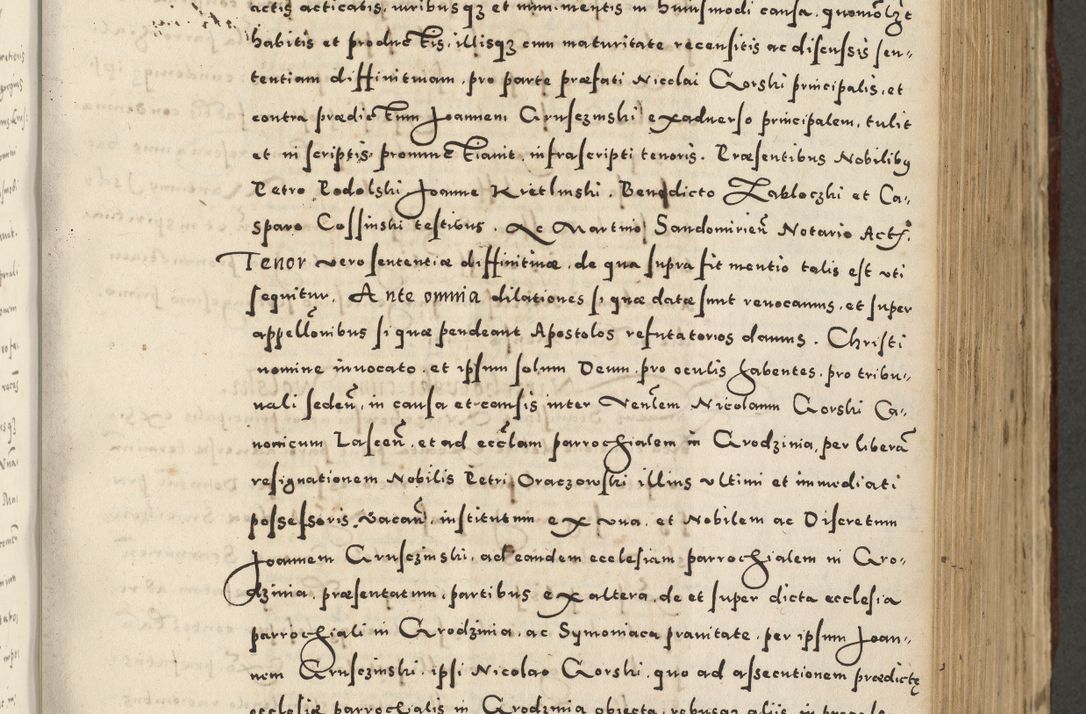 actis acticatis, iuribusqʒ et munimentis in huiusmodi causa, quomōlʒt
habitis et productis, illisqʒ cum maturitate recensitis ac discussis sen-
tentiam diffinitiuam, pro parte præfati Nicolai Gorski principalis, et
contra prædictum Joannem Grusczinski exaduerso principalem, tulit
et in scriptis pronunctiauit, infrascripti tenoris. Præsentibus Nobilibꝰ
Petro Podolski Joanne Kretlinski, Benedicto Zabloczki et Ca-
sparo Cossinski testibus. Ac Martino Sandomirieñ Notario Act.
Tenor vero sententiæ diffinitiuæ, de qua supra fit mentio talis est vti
sequitur. Ante omnia dilationes si quæ datæ sunt reuocamus, et super
appellōnibus si quæ pendeant Apostolos refutatorios damus. Christi
nomine inuocato, et ipsum solum Deum, pro oculis habentes, pro tribu-
nali sedeñ, in causa et causis inter Veñlem Nicolaum Gorski Ca-
nonicum Lasceñ, et ad eccłam parrochialem in Grodzinia, per liberā
resignationem Nobilis Petri Oraczowski illius vltimi et immediati
possessoris, vacañ, institutum ex vna, et Nobilem ac Discretum
Joannem Grusczinski, ad eandem ecclesiam parrochialem in Gro-
dzinia, præsentatum, partibus ex altera, de et super dicta ecclesia
parrochiali in Grodzinia, ac Symoniaca prauitate, per ipsum Joan-
nem Grusczinski, ipsi Nicolao Gorski, quo ad assecutionem prædictę
ecclesiæ parrochialis in Grodzinia obiecta, rebusqʒ aliis in